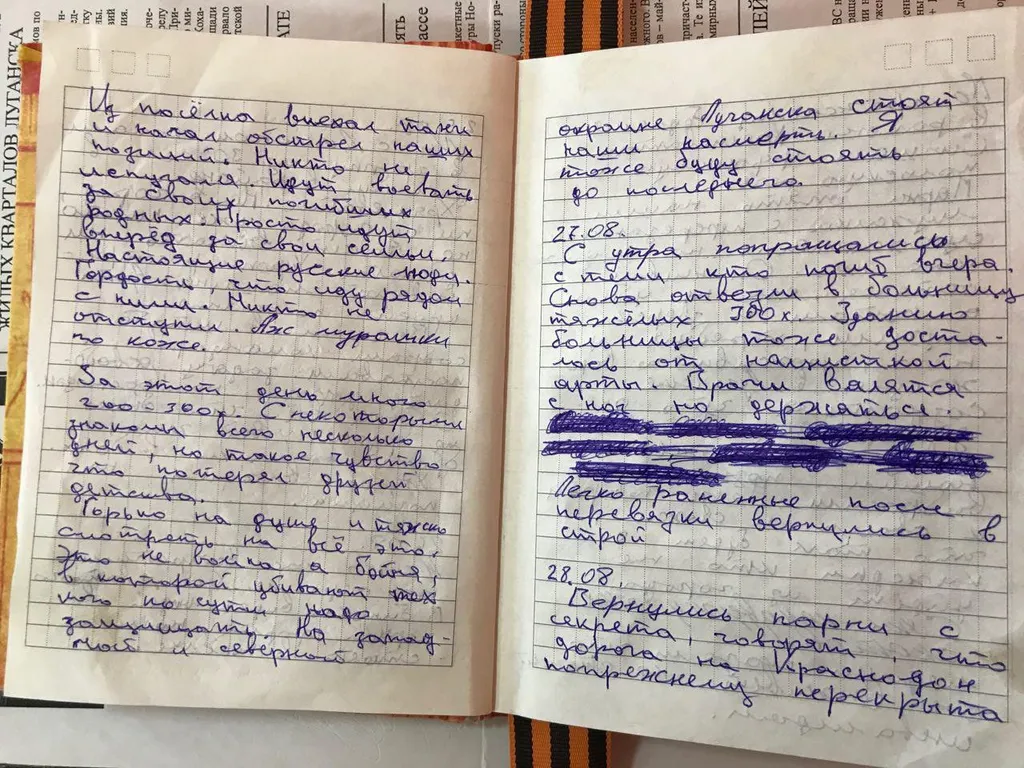 ЖИЛЫХ КВАРТАЛОВ ЛУГАНСКА
Из посёлка выехал танк
и начал обстрел наших
позиций. Никто не
испугался. Идут воевать
за своих погибших
родных. Просто идут
вперёд за свои семьи.
Настоящие русские люди.
Гордость, что иду рядом
с ними. Никто не
отступил. Аж мурашки
по коже.
За этот день много
200-300х. С некоторыми
знакомы всего несколько
дней, но такое чувство
что потерял друзей
детства.
Только на душе и тяжко
смотреть на всё это.
Это не война а бойня,
в которой убивают тех
кого по сути надо
защищать. На запад-
ной и северной
окраине Луганска стоят
наши насмерть. Я
тоже буду стоять
до последнего.
27.08.
С утра попрощались
с теми кто погиб вчера.
Снова отвезли в больницу
тяжёлых 300х. Зданию
больницы тоже доста-
лось от нацистской
арты. Врачи валятся
с ног но держаться.
Легко раненные после
перевязки вернулись в
строй
28.08.
Вернулись парни с
секрета, говорят, что
дорога на Краснодон
попрежнему перекрыта